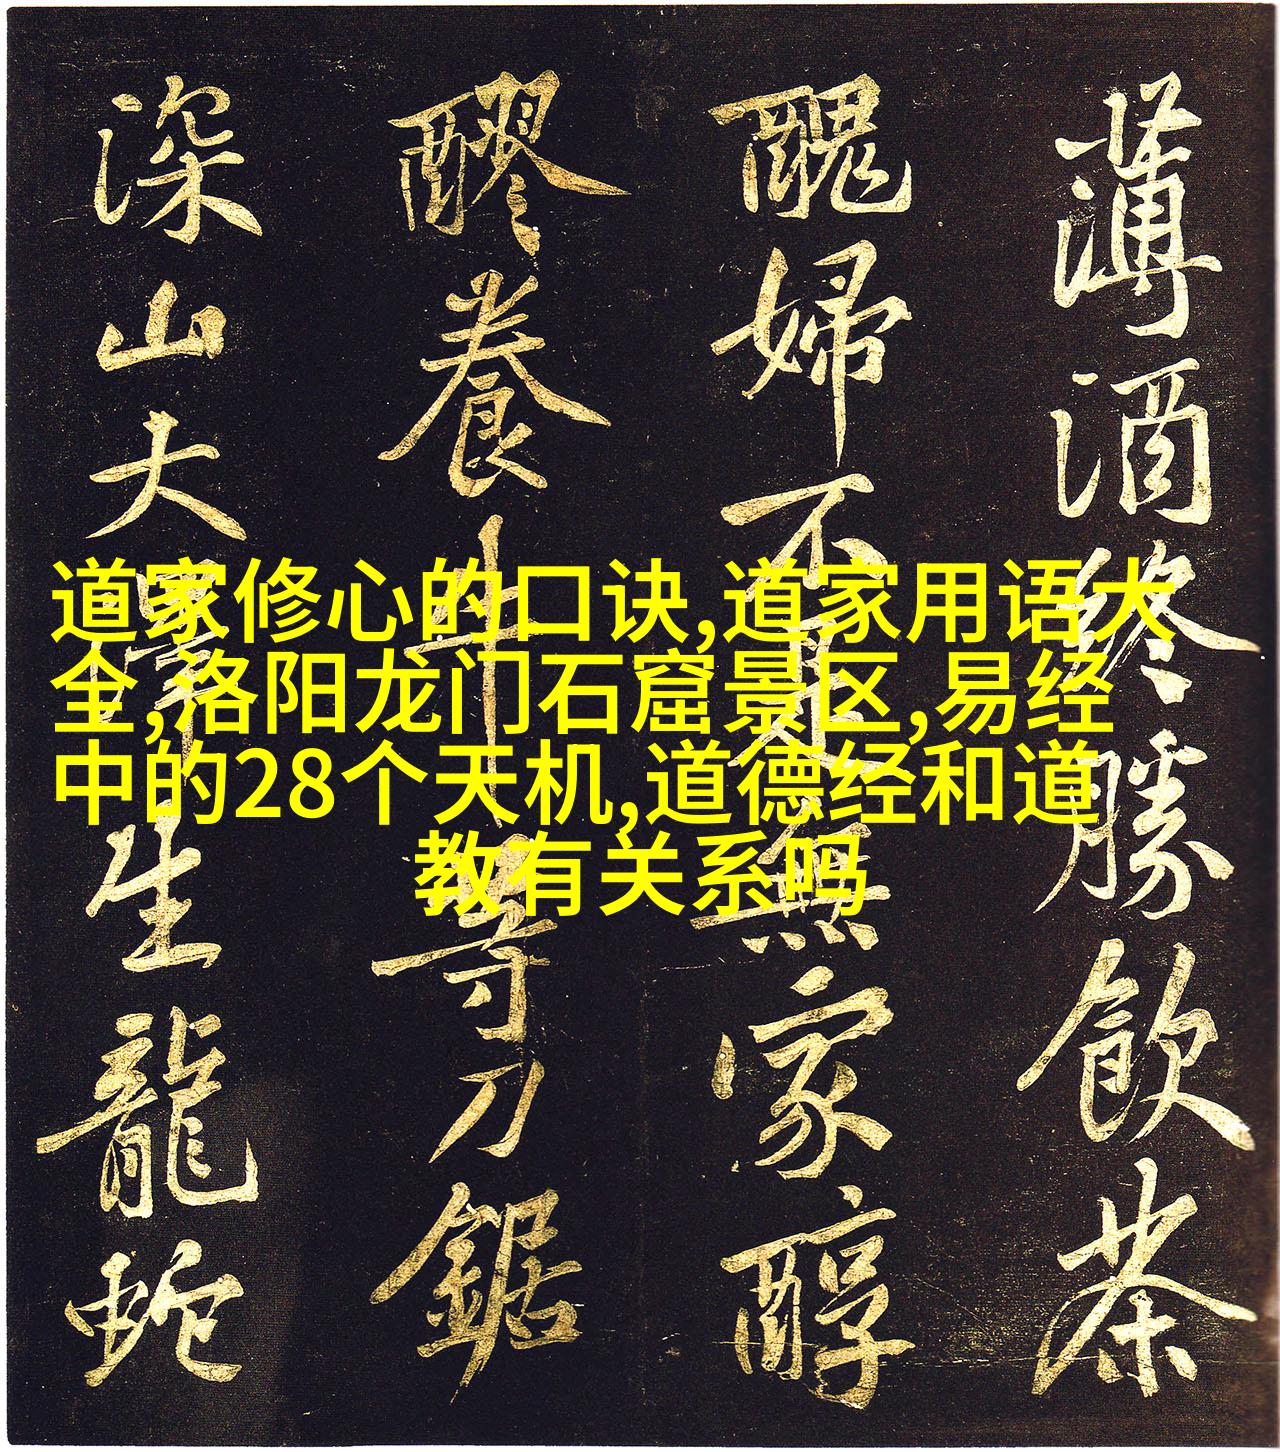 薄酒終勝飲茶
醜婦不是無家醇
醪養牛等刀鋸
深山大澤生龍蛇
道家修心的口诀,道家用语大
全,洛阳龙门石窟景区,易经
中的28个天机,道德经和道
教有关系吗